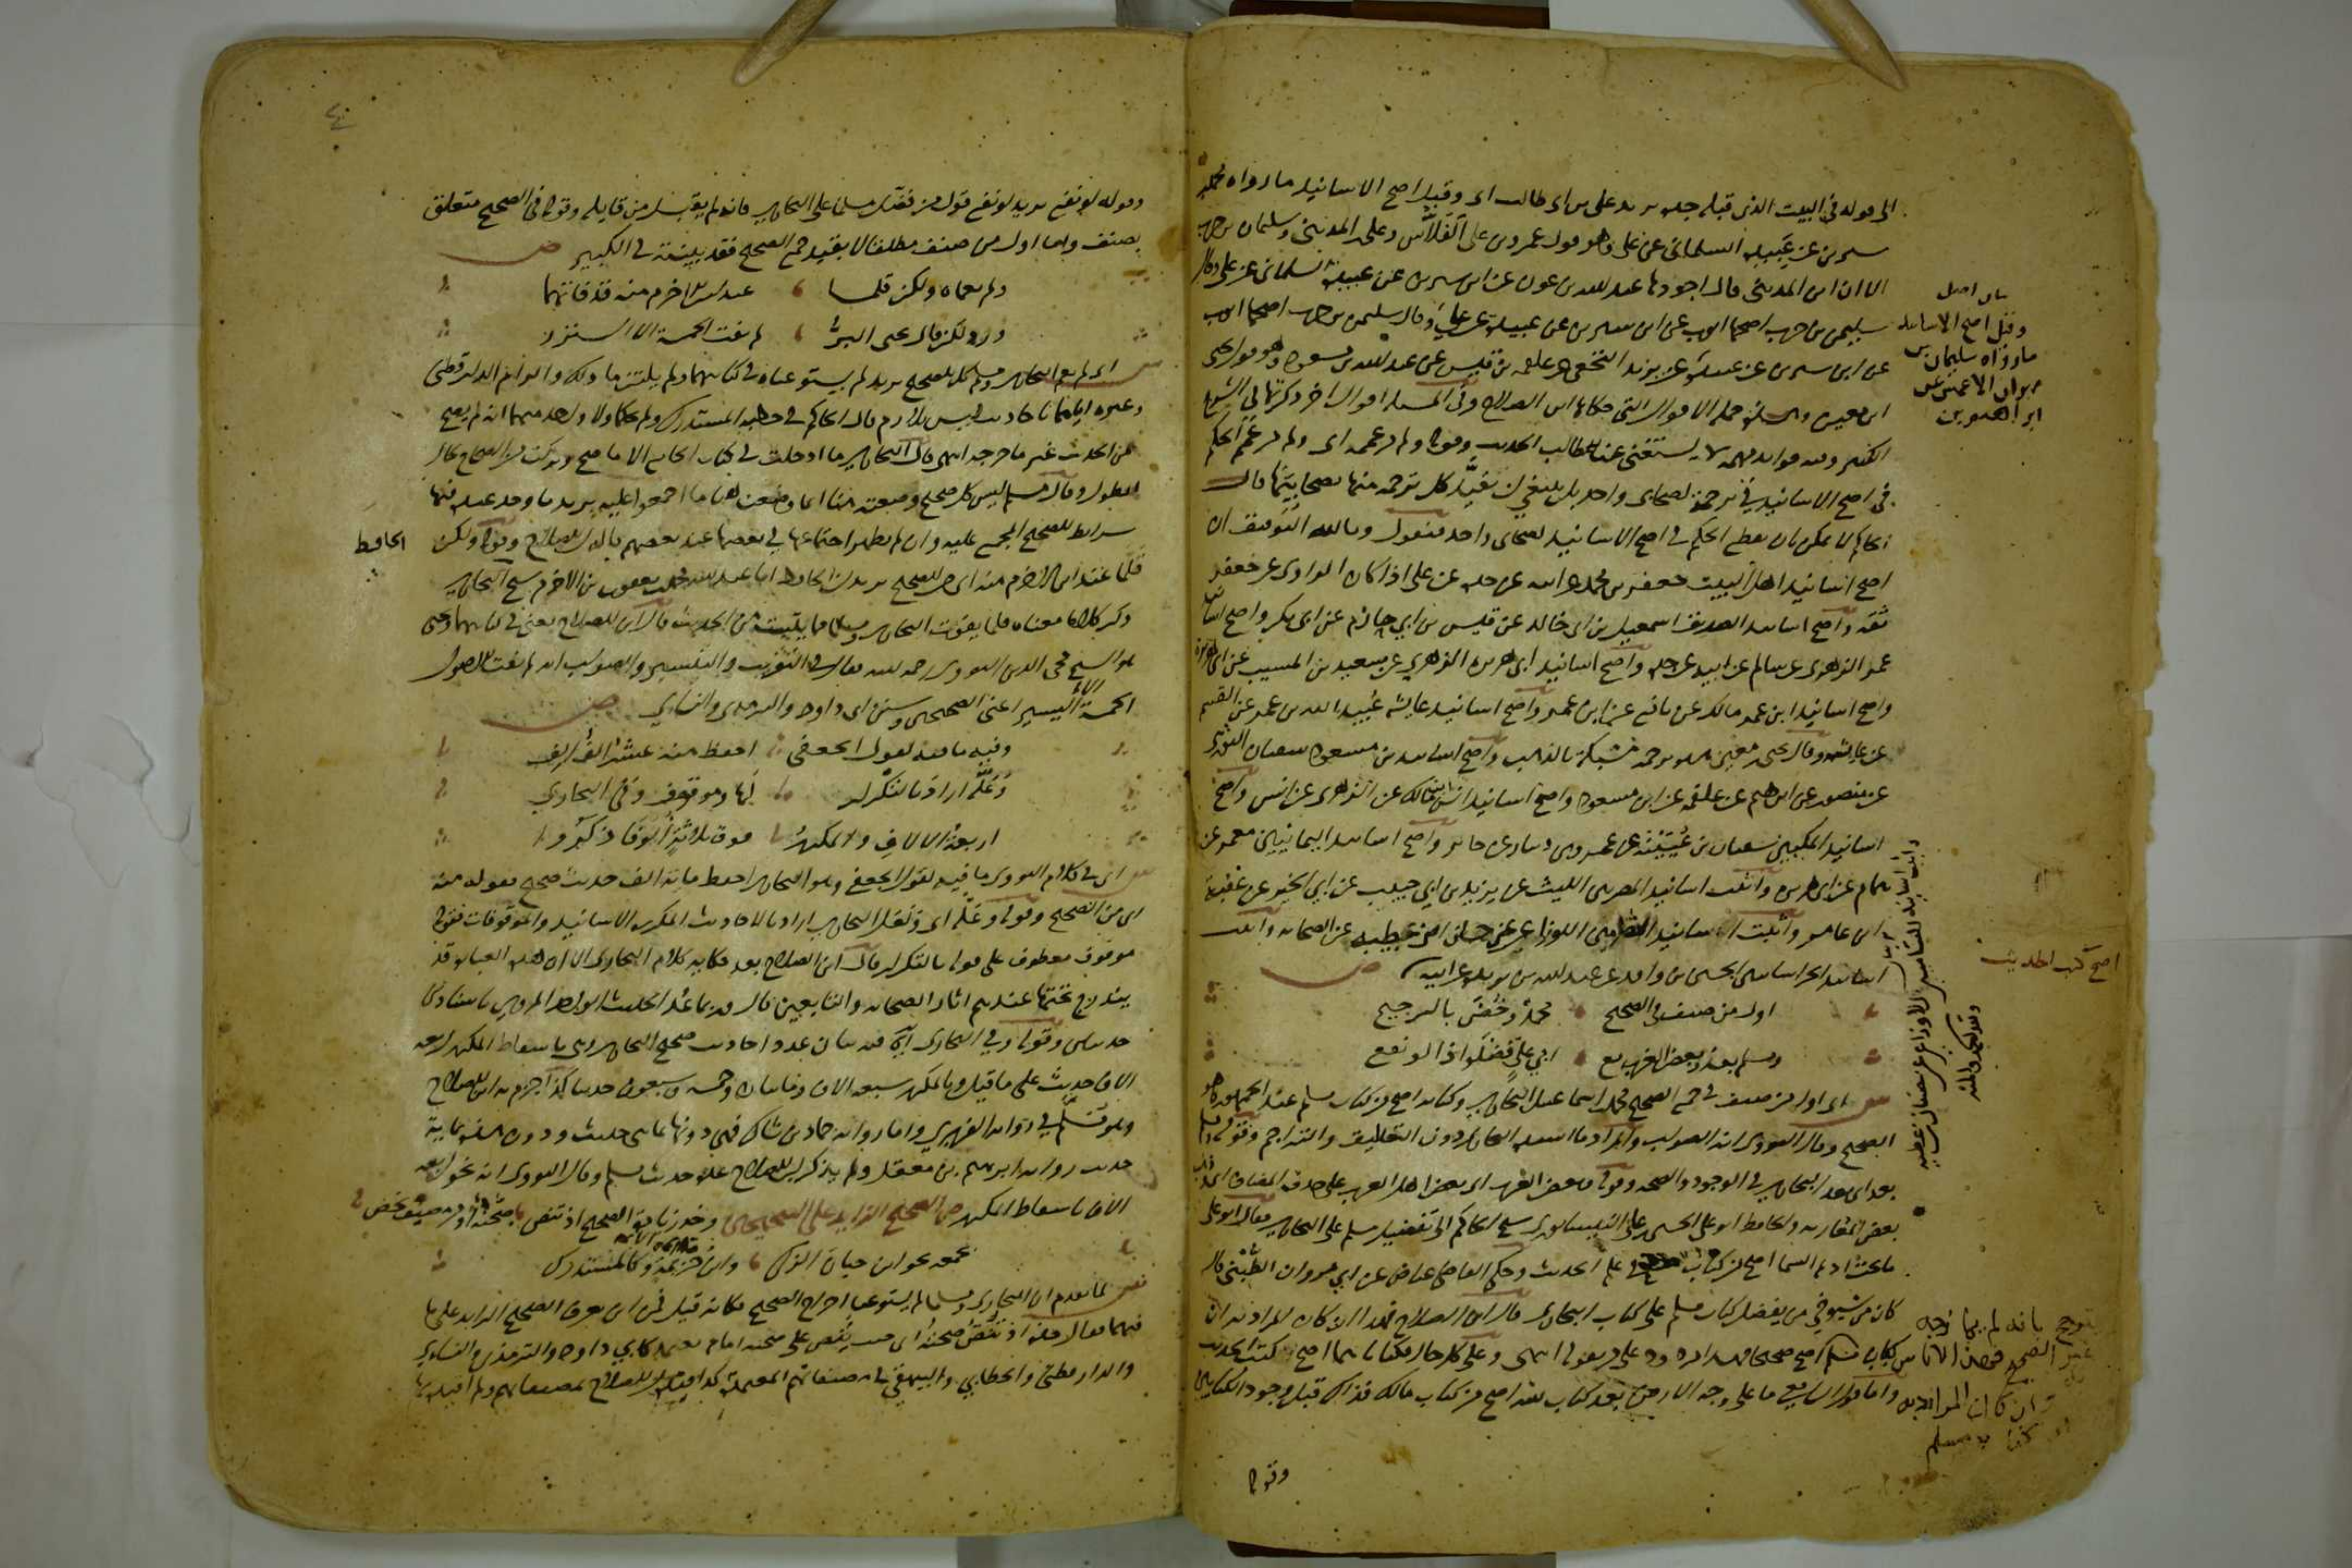 الى قوله في البيت الذي قبله جده يريد علي بن ابي طالب اي وقيل اصح الاسانيد ما رواه محمد بن
سيرين عن عبيدة السلماني عن علي وهو قول عمرو بن علي الفلاس وعلي بن المديني وسليمان بن حرب
الا ان ابن المديني قال اجودها عبد الله بن عون عن ابن سيرين عن عبيدة السلماني عن علي وقال
سليمن بن حرب اصحها ايوب عن ابن سيرين عن عبيدة عن علي
ابن معين وابن الصلاح وفي المسئلة اقوال اخر ذكرتها في الشرح
الكبير وفيه فوايد مهمة لا يستغني عنها طالب الحديث وقوله ولم من عممه اي ولم من عمم الحكم
في اصح الاسانيد في ترجمة لصحابي واحد بل ينبغي ان تقيد كل ترجمة منها بصحابيها قال
الحاكم لا يمكن ان يقطع الحكم في اصح الاسانيد لصحابي واحد فنقول وبالله التوفيق ان
اصح اسانيد اهل البيت جعفر بن محمد عن ابيه عن جده عن علي اذا كان الراوي عن جعفر
ثقة واصح اسانيد الصديق اسمعيل بن ابي خالد عن قيس بن ابي حازم عن ابي بكر واصح اسانيد
عمر الزهري عن سالم عن ابيه عن جده واصح اسانيد ابي هريرة الزهري عن سعيد بن المسيب عن ابي هريرة
واصح اسانيد ابن عمر مالك عن نافع عن ابن عمر واصح اسانيد عايشة عبيد الله بن عمر عن القسم
عن عايشة وقال يحيى بن معين هذه ترجمة مشبكة بالذهب واصح اسانيد بن مسعود سفيان الثوري
عن منصور عن ابراهيم عن علقمة عن ابن مسعود واصح اسانيد انس مالك عن الزهري عن انس واصح
اسانيد المكيين سفيان بن عيينة عن عمرو بن دينار عن جابر واصح اسانيد اليمانيين معمر عن
همام عن ابي هريرة واثبت اسانيد المصريين الليث عن يزيد بن ابي حبيب عن ابي الخير عن عقبة
ابن عامر واثبت اسانيد الشاميين الاوزاعي عن حسان بن عطية عن الصحابة واثبت
اسانيد الخراسانيين الحسين بن واقد عن عبد الله بن بريدة عن ابيه
اول من صنف في الصحيح محمد وخص بالترجيح
ومسلم بعد وبعض الغرب مع ابي علي فضلوا ذا لو نفع
اي اول من صنف في جمع الصحيح محمد بن اسماعيل البخاري وكتابه اصح من كتاب مسلم عند الجمهور وهو
الصحيح وقال النووي انه الصواب والمراد ما اسنده البخاري دون التعليق والتراجم وقوله ومسلم
بعد اي بعد البخاري في الوجود والصحة وقوله وبعض الغرب اي بعض اهل الغرب على حذف المضاف اي وذهب
بعض المغاربة والحافظ ابو علي الحسين بن علي النيسابوري شيخ الحاكم الى تفضيل مسلم على البخاري فقال ابو علي
ما تحت اديم السما اصح من كتاب مسلم في علم الحديث وحكى القاضي عياض عن ابي مروان الطبني قال
كان من شيوخي من يفضل كتاب مسلم على كتاب البخاري قال ابن الصلاح فهذا ان كان المراد به ان
وعلى كل حال فكتاباهما اصح كتب الحديث
واما قول الشافعي ما على وجه الارض بعد كتاب الله اصح من كتاب مالك فذاك قبل وجود الكتابين
وقيل اصح الاسانيد
ما رواه سليمان بن
مهران الاعمش عن
اصح كتب الحديث
وقوله
وقوله لو نفع يريد لو نفع قول من فضل مسلما على البخاري فانه لم يقبل من قايله وقوله في الصحيح متعلق
بصنف واما اول من صنف مطلقا لا بقيد جمع الصحيح فقد بينته في الكبير
ولم يعماه ولكن قلما عند ابن الاخرم منه قد فاتهما
ورد ولكن قال يحيى البر لم يفت الخمسة الا النزر
اي لم يعم البخاري ومسلم كل الصحيح يريد لم يستوعباه في كتابيهما ولم يلتزما ذلك والزام الدارقطني
وغيره اياهما باحاديث ليس بلازم قال الحاكم في خطبة المستدرك ولم يحكما ولا واحد منهما انه لم يصح
من الحديث غير ما خرجه انتهى قال البخاري ما ادخلت في كتابي الجامع الا ما صح وتركت من الصحاح لحال
الطول وقال مسلم ليس كل صحيح وضعته هنا انما وضعت هاهنا ما اجمعوا عليه يريد ما وجد عنده فيها
شرايط الصحيح المجمع عليه وان لم يظهر اجتماعها في بعضها عند بعضهم قاله ابن الصلاح وقوله ولكن
قلما عند ابن الاخرم منه اي من الصحيح يريد ان الحافظ ابا عبد الله محمد بن يعقوب بن الاخرم شيخ الحاكم
ذكر كلاما معناه قلما يفوت البخاري ومسلما مما يثبت من الحديث قال ابن الصلاح يعني في كتابيهما ويحيى
هو الشيخ محيي الدين النووي رحمه الله فقال في التقريب والتيسير والصواب انه لم يفت الاصول
الخمسة الا اليسير اعني الصحيحين وسنن ابي داود والترمذي والنسائي
وفيه ما فيه لقول الجعفي احفظ منه عشر الف الف
وعله اراد بالتكرار لها وموقوف وفي البخاري
اربعة الالاف والمكرر فوق ثلاثة الوفا ذكروا
اي في كلام النووي ما فيه لقول الجعفي وهو البخاري احفظ ماية الف حديث صحيح فقوله منه
اي من الصحيح وقوله وعله اي ولعل البخاري اراد بالاحاديث المكررة الاسانيد والموقوفات فقوله
موقوف معطوف على قوله بالتكرار قال ابن الصلاح بعد حكاية كلام البخاري الا ان هذه العبارة قد
يندرج تحتها عندهم اثار الصحابة والتابعين قال وربما عد الحديث الواحد المروي باسنادين
حديثين وقوله وفي البخاري اي فيه بيان عدد احاديث صحيح البخاري وهي باسقاط المكرر اربعة
الاف حديث على ما قيل وبالمكرر سبعة الاف ومايتان وخمسة وسبعون حديثا كذا جزم به ابن الصلاح
وهو مسلم في رواية الفربري واما رواية حماد بن شاكر فهي دونها بمايتي حديث ودون هذه بماية
حديث رواية ابراهيم بن معقل ولم يذكر ابن الصلاح عدة حديث مسلم وقال النووي انه نحو اربعة
الاف باسقاط المكرر ص الصحيح الزايد على الصحيحين وخذ زيادة الصحيح اذ تنص صحته او من مصنف يخص
بجمعه نحو ابن حبان الزكي وابن خزيمة وكالمستدرك
لما تقدم ان البخاري ومسلما لم يستوعبا اخراج الصحيح فكانه قيل فمن اين يعرف الصحيح الزايد على ما
فيهما فقال خذه اذ تنص صحته اي حيث ينص على صحته امام معتمد كابي داود والترمذي والنسائي
والدارقطني والخطابي والبيهقي في مصنفاتهم المعتمدة كذا قيده ابن الصلاح بمصنفاتهم ولم اقيده بها
الحافظ